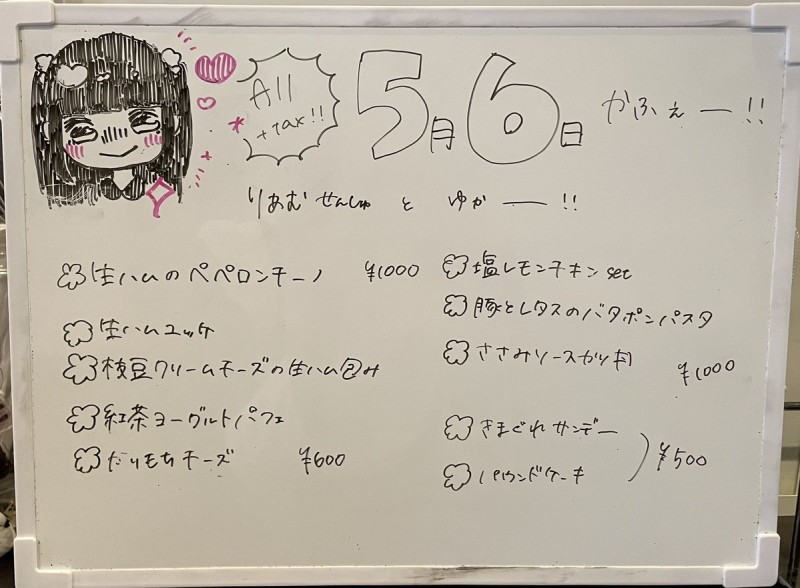 All
+tax!!
5月6日 かふぇー!!
りあむせんしゅ と ゆかー!!
生ハムのペペロンチーノ ¥1000
生ハムユッケ
枝豆クリームチーズの生ハム包み
紅茶ヨーグルトパフェ
だいもちチーズ ¥600
塩レモンチキンset
豚とレタスのバタポンパスタ
ささみソースカツ丼
¥1000
きまぐれサンデー
パウンドケーキ
¥500